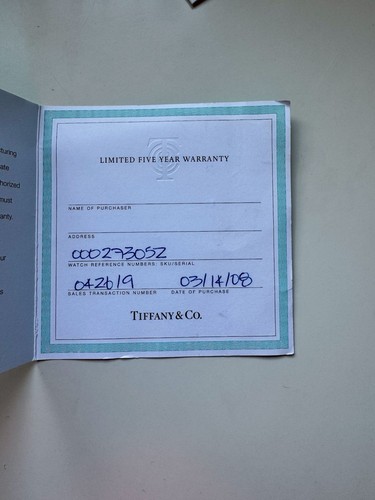 turing
ate
horized
must
anty.
ur
s
LIMITED FIVE YEAR WARRANTY
NAME OF PURCHASER
ADDRESS
000293052
WATCH REFERENCE NUMBERS: SKU/SERIAL
042619 03/14/08
SALES TRANSACTION NUMBER DATE OF PURCHASE
TIFFANY & CO.